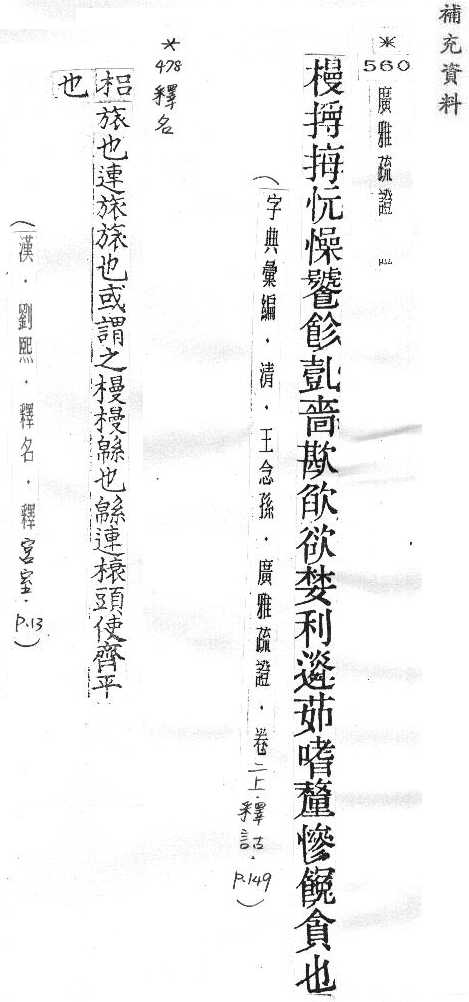 補充資料
* 560 廣雅疏證
槾撏挴忨懆饕飻亄嗇歁欿欲婪利遴茹嗜釐慘貪也
(字典彙編．清．王念孫．廣雅疏證．卷二上．釋詁．P.149)
* 478 釋名
梠旅也連旅旅也或謂之槾槾緜也緜連榱頭使齊平
也
(漢．劉熙．釋名．釋宮室．P.13)